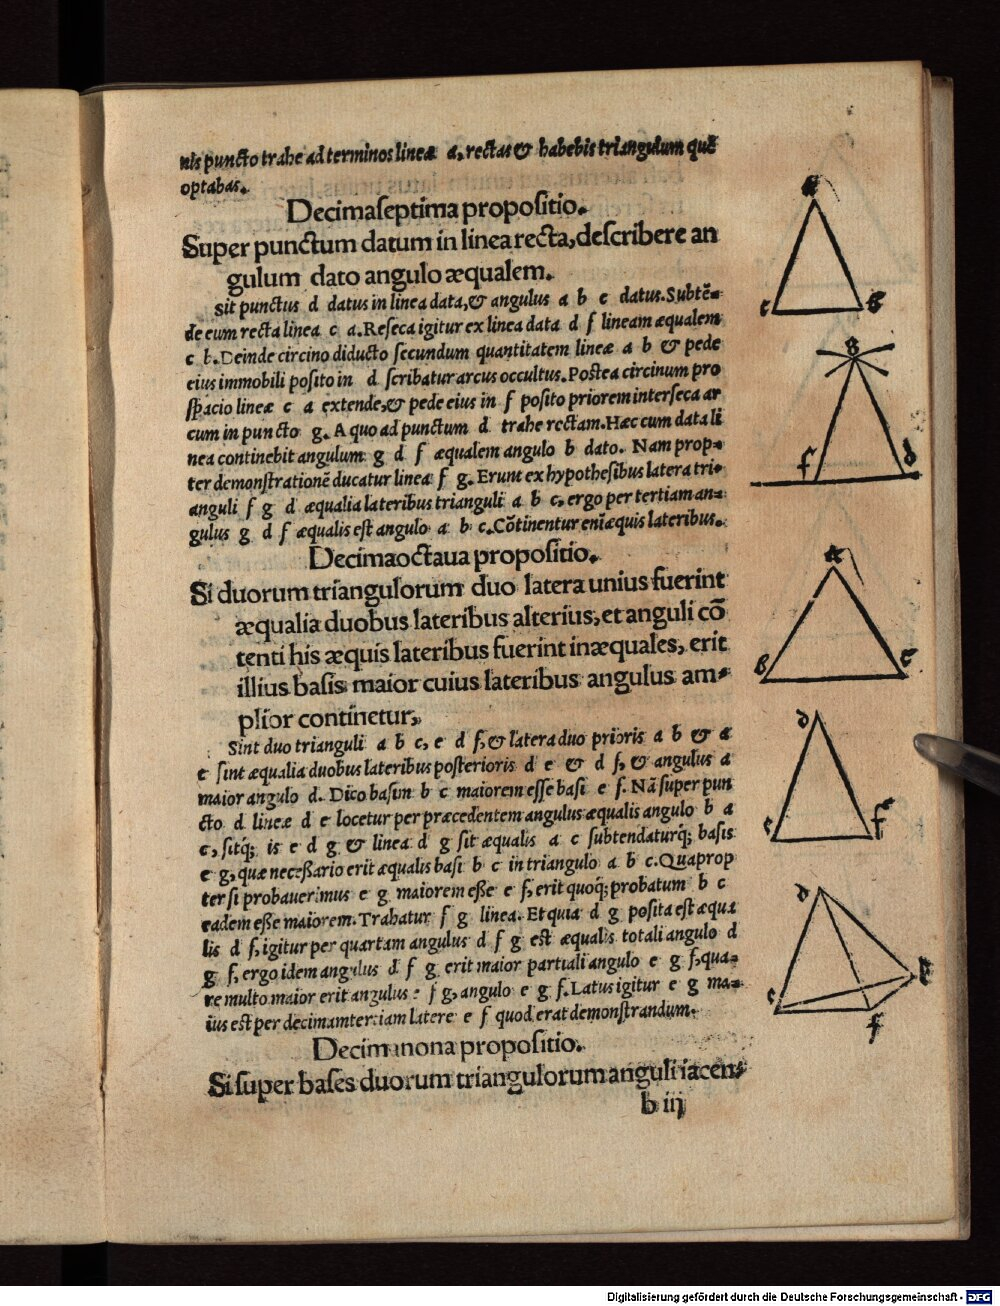 nis puncto trahe ad terminos lineæ a, rectas & habebis triangulum quẽ
optabas.
Decimaseptima propositio.
Super punctum datum in linea recta, describere an
gulum dato angulo æqualem.
sit punctus d datus in linea data, & angulus a b c datus. Subtẽ=
de eum recta linea c a. Reseca igitur ex linea data d f lineam æqualem
c b. Deinde circino diducto secundum quantitatem lineæ a b & pede
eius immobili posito in d scribatur arcus occultus. Postea circinum pro
spacio lineæ c a extende, & pede eius in f posito priorem interseca ar
cum in puncto g. A quo ad punctum d trahe rectam. Hæc cum data li
nea continebit angulum g d f æqualem angulo b dato. Nam prop=
ter demonstrationẽ ducatur lineæ f g. Erunt ex hypothesibus latera tri=
anguli f g d æqualia lateribus trianguli a b c, ergo per tertiam an=
gulus g d f æqualis est angulo a b c. Cõtinentur enĩ æquis lateribus.
Decimaoctaua propositio.
Si duorum triangulorum duo latera unius fuerint
æqualia duobus lateribus alterius, et anguli cõ
tenti his æquis lateribus fuerint inæquales, erit
illius basis maior cuius lateribus angulus am=
plior continetur,
Sint duo trianguli a b c, e d f, & latera duo prioris a b & a
c sint æqualia duobus lateribus posterioris d e & d f, & angulus a
maior angulo d. Dico basim b c maiorem esse basi e f. Nã super pun
cto d lineæ d e locetur per præcedentem angulus æqualis angulo b a
c, sitq; is e d g & linea d g sit æqualis a c subtendaturq; basis
e g, quæ necessario erit æqualis basi b c in triangulo a b c. Quaprop
ter si probauerimus e g maiorem esse e f, erit quoq; probatum b c
eadem esse maiorem. Trahatur f g linea. Et quia d g posita est æqua
lis d f, igitur per quartam angulus d f g est æqualis totali angulo d
g f, ergo idem angulus d f g erit maior partiali angulo e g f, qua=
re multo maior erit angulus e f g, angulo e g f. Latus igitur e g ma=
ius est per decimamtertiam latere e f quod erat demonstrandum.
Decimanona propositio.
Si super bases duorum triangulorum anguli iacen=
b iij
a
c
B
g
f
d
a
B
c
d
e
f
d
e
g
f
Digitalisierung gefördert durch die Deutsche Forschungsgemeinschaft - DFG